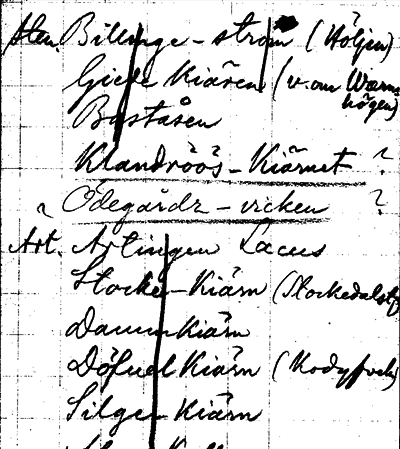 Billinge-ström (Höljen)
Giede Kiären (v. om Wärm
högen)
Baståsen
Klandröös-Kiärnet ?
? Ödegärdz-vicken ?
Art. Artingen Lacus
Stocke-Kiärn (Stockedalst
Damm Kiärn
Döfuel Kiärn
Silger Kiärn